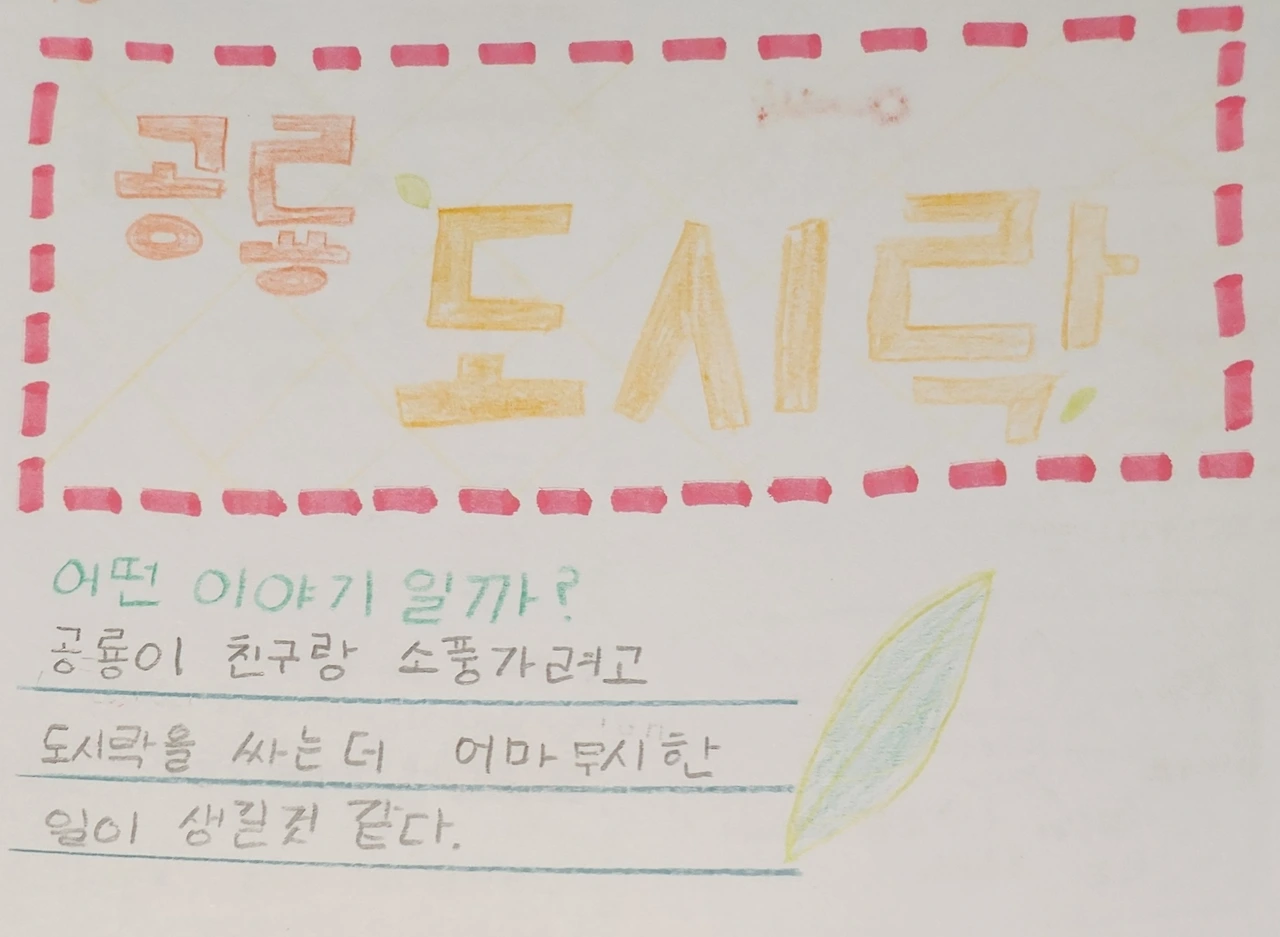 공룡 도시락
어떤 이야기 일까?
공룡이 친구랑 소풍가려고
도시락을 싸는더 어마무시한
일이 생길것 같다.